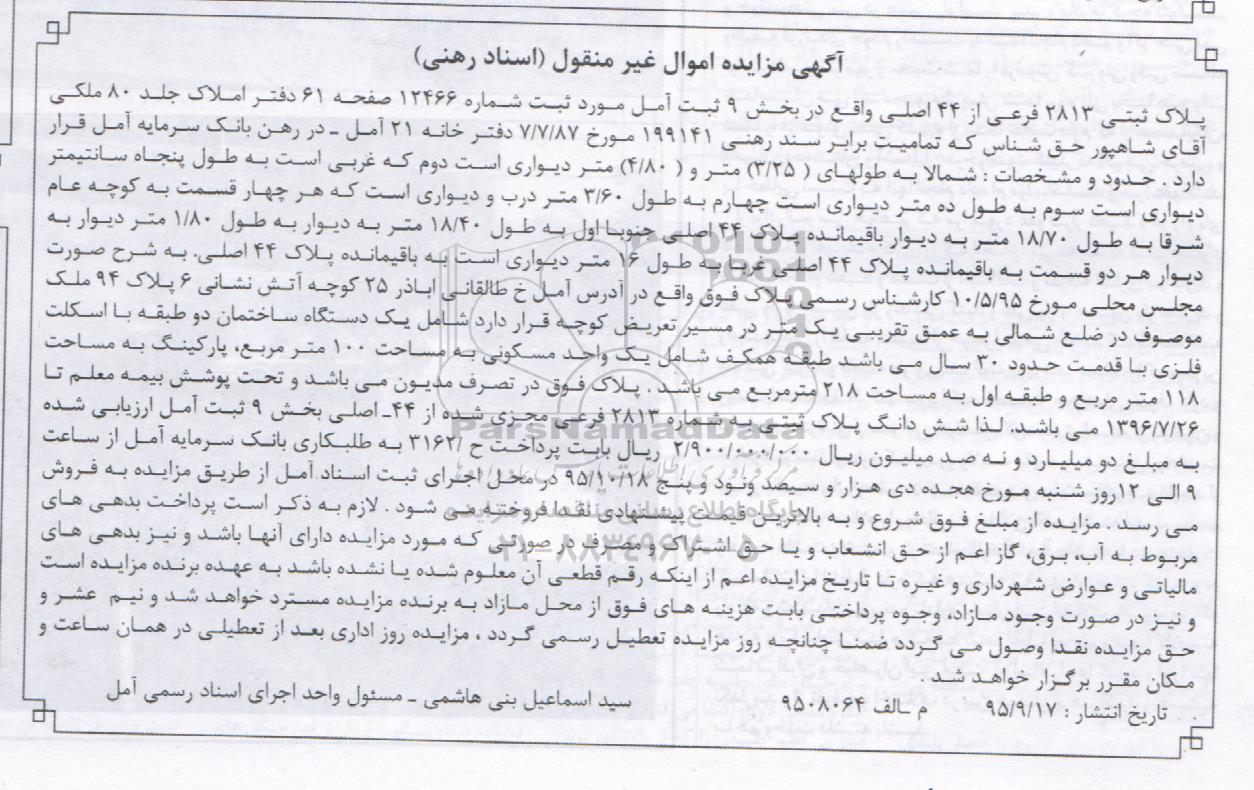 آگهی مزایده اموال غیر منقول (اسناد رهنی)
پلاک ثبتی ۲۸۱۳ فرعی از ۴۴ اصلی واقع در بخش ۹ ثبت آمل مورد ثبت شماره ۱۲۴۶۶ صفحه ۶۱ دفتر املاک جلد ۸۰ ملکی
آقای شاهپور حق شناس که تمامیت برابر سند رهنی ۱۹۹۱۴۱ مورخ ۷/۷/۸۷ دفتر خانه ۲۱ آمل ـ در رهن بانک سرمایه آمل قرار
دارد. حدود و مشخصات : شمالا به طولهای ( ۳/۲۵) متر و ( ۴/۸۰) متر دیواری است دوم که غربی است به طول پنجاه سانتیمتر
دیواری است سوم به طول ده متر دیواری است چهارم به طول ۳/۶۰ متر درب و دیواری است که هر چهار قسمت به کوچه عام
شرقا به طول ۱۸/۷۰ متر به دیوار باقیمانده پلاک ۴۴ اصلی جنوبا اول به طول ۱۸/۴۰ متر به دیوار به طول ۱/۸۰ متر دیوار به
دیوار هر دو قسمت به باقیمانده پلاک ۴۴ اصلی غربا به طول ۱۶ متر دیواری است به باقیمانده پلاک ۴۴ اصلی. به شرح صورت
مجلس محلی مورخ ۱۰/۵/۹۵ کارشناس رسمی پلاک فوق واقع در آدرس آمل خ طالقانی اباذر ۲۵ کوچه آتش نشانی ۶ پلاک ۹۴ ملک
موصوف در ضلع شمالی به عمق تقریبی یک متر در مسیر تعریض کوچه قرار دارد شامل یک دستگاه ساختمان دو طبقه با اسکلت
فلزی با قدمت حدود ۳۰ سال می باشد طبقه همکف شامل یک واحد مسکونی به مساحت ۱۰۰ متر مربع، پارکینگ به مساحت
۱۱۸ متر مربع و طبقه اول به مساحت ۲۱۸ مترمربع می باشد . پلاک فوق در تصرف مدیون می باشد و تحت پوشش بیمه معلم تا
۱۳۹۶/۷/۲۶ می باشد. لذا شش دانگ پلاک ثبتی به شماره ۲۸۱۳ فرعی مجزی شده از ۴۴ـ اصلی بخش ۹ ثبت آمل ارزیابی شده
به مبلغ دو میلیارد و نه صد میلیون ریال ۲/۹۰۰/۰۰۰/۰۰۰ ریال بابت پرداخت ح /۳۱۶۲ به طلبکاری بانک سرمایه آمل از ساعت
۹ الی ۱۲روز شنبه مورخ هجده دی هزار و سیصد ونود و پنج ۹۵/۱۰/۱۸ در محل اجرای ثبت اسناد آمل از طریق مزایده به فروش
می رسد . مزایده از مبلغ فوق شروع و به بالاترین قیمت پیشنهادی نقدا فروخته می شود . لازم به ذکر است پرداخت بدهی های
مربوط به آب، برق، گاز اعم از حق انشعاب و یا حق اشتراک و مصرف در صورتی که مورد مزایده دارای آنها باشد و نیز بدهی های
مالیاتی و عوارض شهرداری و غیره تا تاریخ مزایده اعم از اینکه رقم قطعی آن معلوم شده یا نشده باشد به عهده برنده مزایده است
و نیز در صورت وجود مازاد، وجوه پرداختی بابت هزینه های فوق از محل مازاد به برنده مزایده مسترد خواهد شد و نیم عشر و
حق مزایده نقدا وصول می گردد ضمنا چنانچه روز مزایده تعطیل رسمی گردد ، مزایده روز اداری بعد از تعطیلی در همان ساعت و
مکان مقرر برگزار خواهد شد .
تاریخ انتشار : ۹۵/۹/۱۷ م ـالف ۹۵۰۸۰۶۴ سید اسماعیل بنی هاشمی ـ مسئول واحد اجرای اسناد رسمی آمل
ParsNamadData